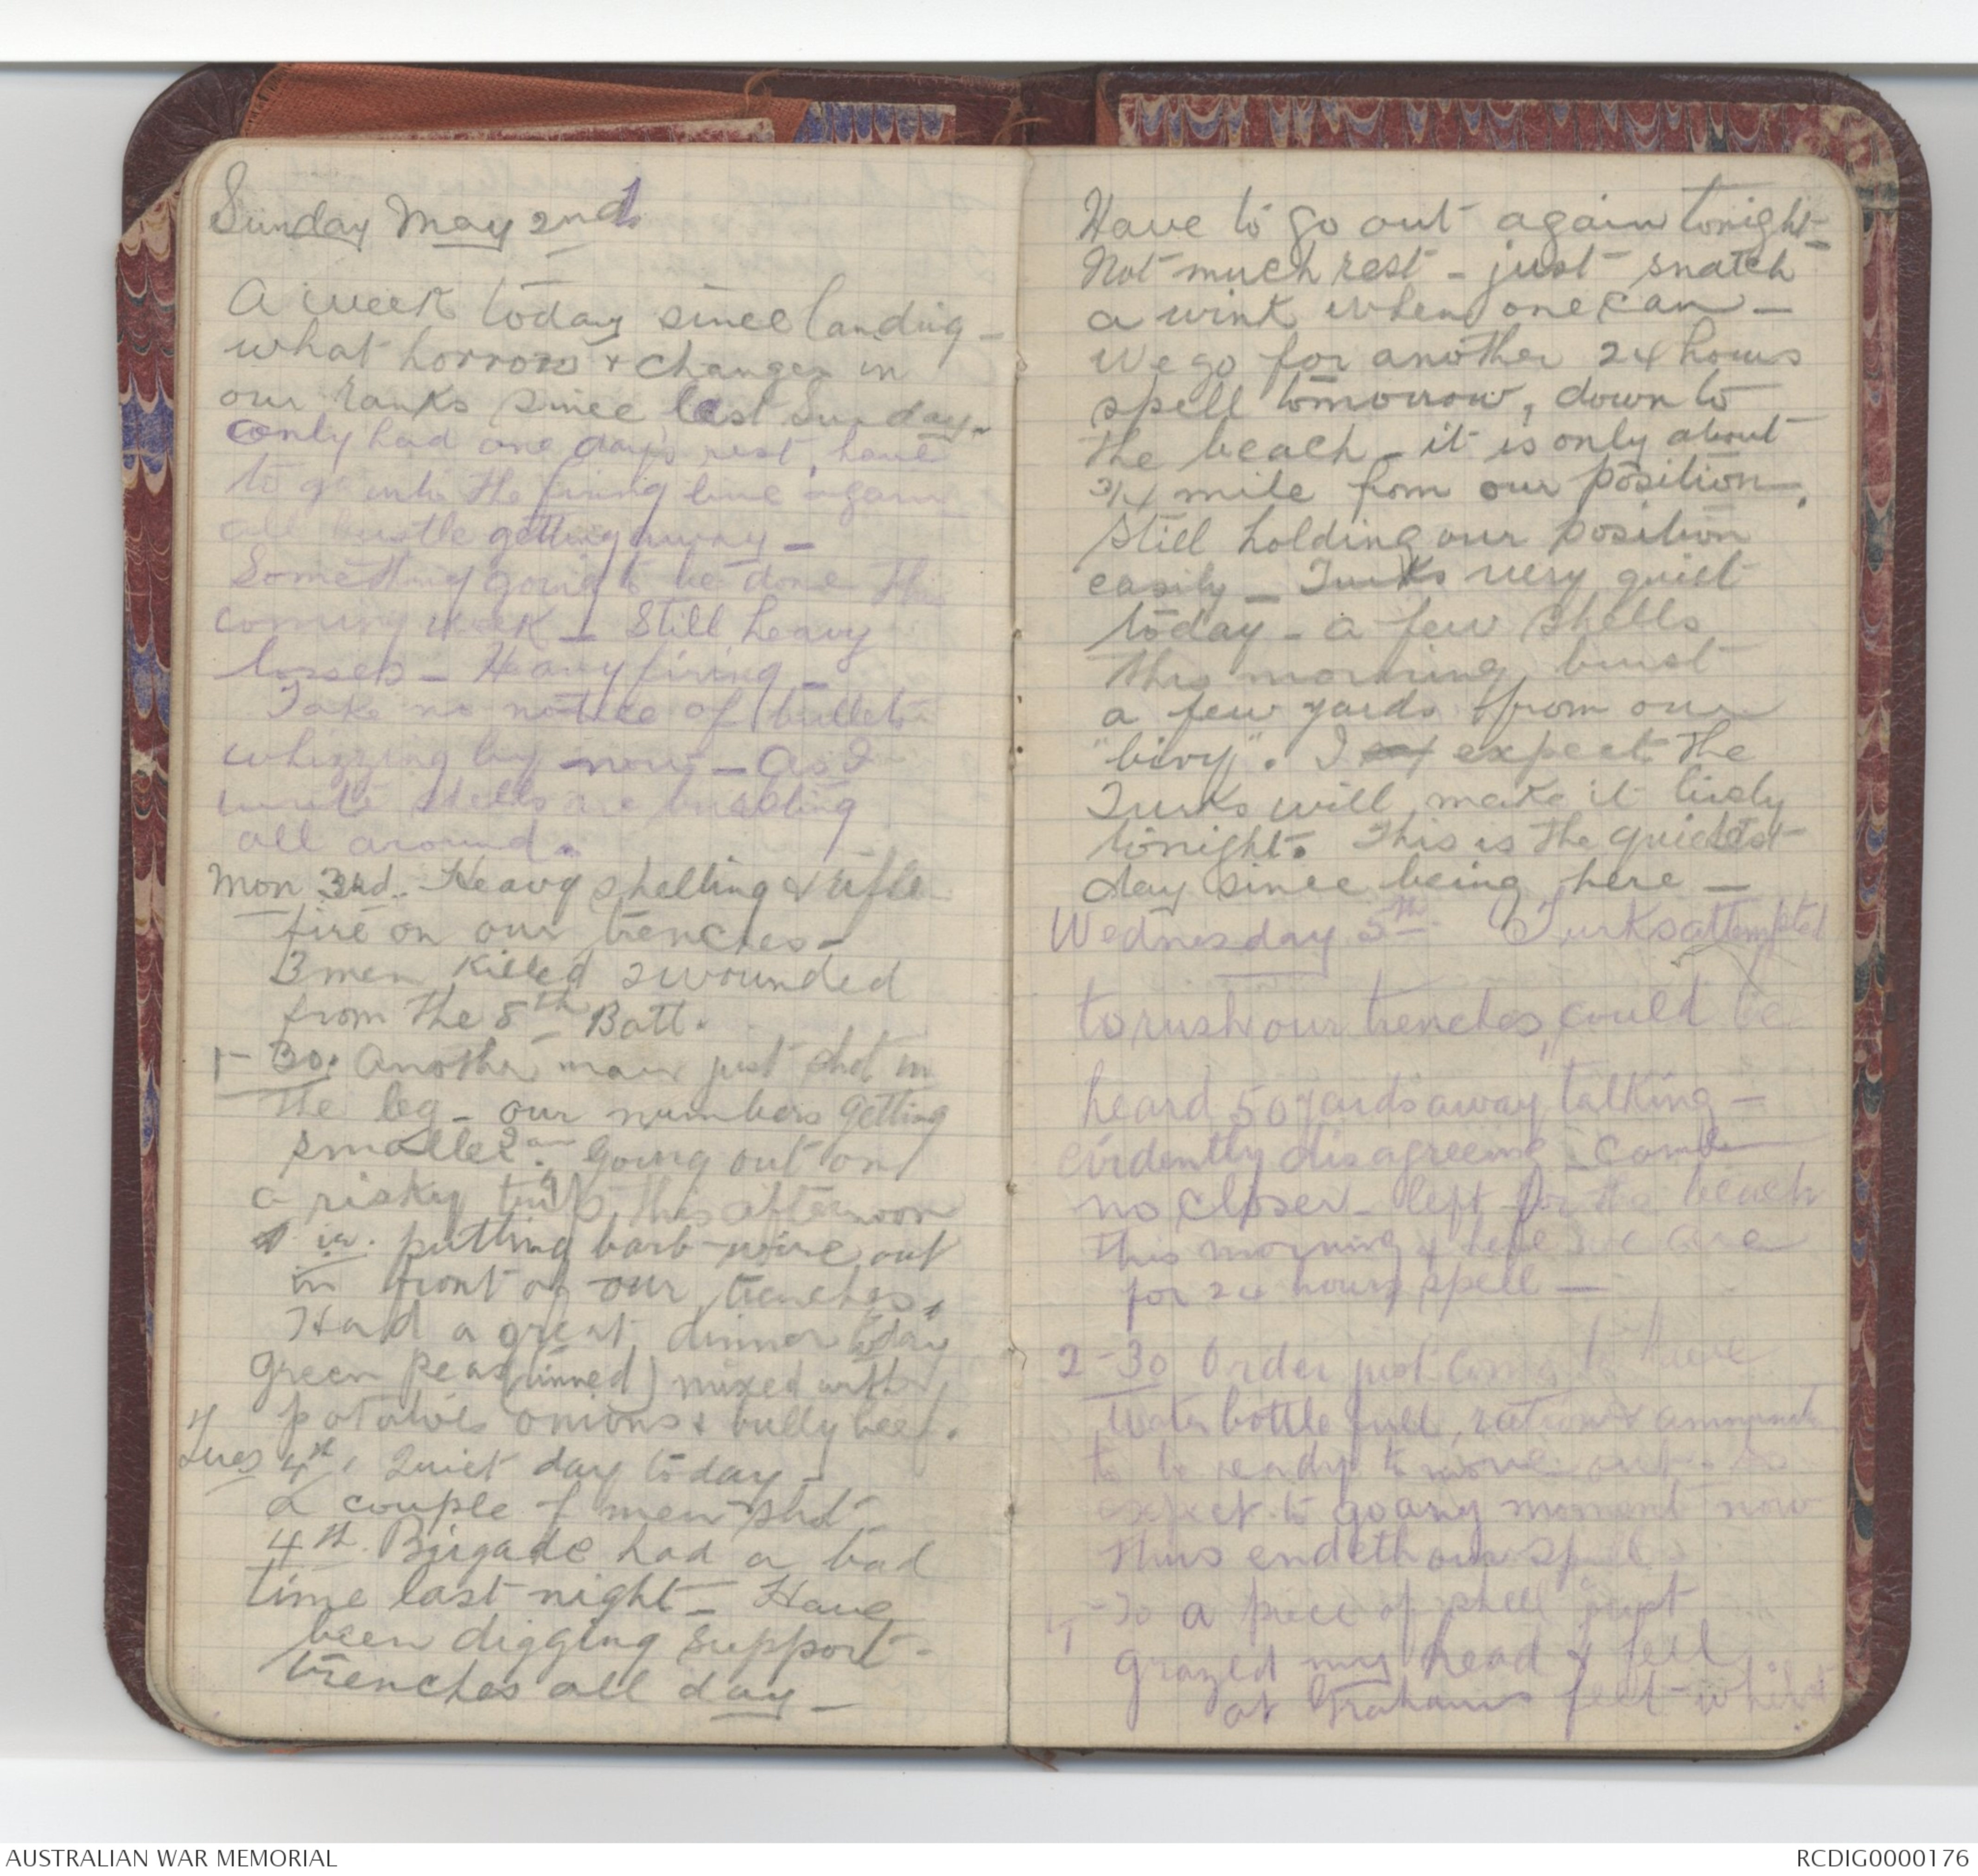 Sunday May 2nd.
A week today since landing -
what horrors & changes in
our ranks since last Sunday -
only had one day's rest, have
to go into the firing line again
all bustle getting away -
Something going to be done this
coming week - Still heavy
losses - Heavy firing -
Take no notice of bullets
whizzing by now - As I
write shells are bursting
all around.
Mon 3rd. Heavy shelling & rifle
fire on our trenches -
3 men killed 2 wounded
from the 8th Batt.
1-30. Another man just shot in
the leg - our numbers getting
smaller. Going out on
a risky trip this afternoon
ie. putting barb-wire out
in front of our trenches.
Had a great dinner today
green peas (tinned) mixed with
potatoes onions & bully beef.
Tues 4th. Quiet day today -
a couple of men shot -
4th Brigade had a bad
time last night - Have
been digging support -
trenches all day -
Have to go out again tonight -
Not much rest - just snatch
a wink when one can -
We go for another 24 hours
spell tomorrow, down to
the beach - it is only about
3/4 mile from our position.
Still holding our position
easily - Turks very quiet
today - a few shells
this morning burst
a few yards from our
"bivy". I expect the
Turks will make it lively
tonight. This is the quietest
day since being here -
Wednesday 5th. Turks attempted
to rush our trenches, could be
heard 50 yards away talking -
evidently disagreeing - came
no closer - left for the beach
this morning & here we are
for 24 hours spell -
2-30 Order just come to have
water bottle full, rations &
to be ready to move out so
expect to go any moment now
thus endeth our spell
a piece of shell just
grazed my head & fell
at Grahams feet whilst